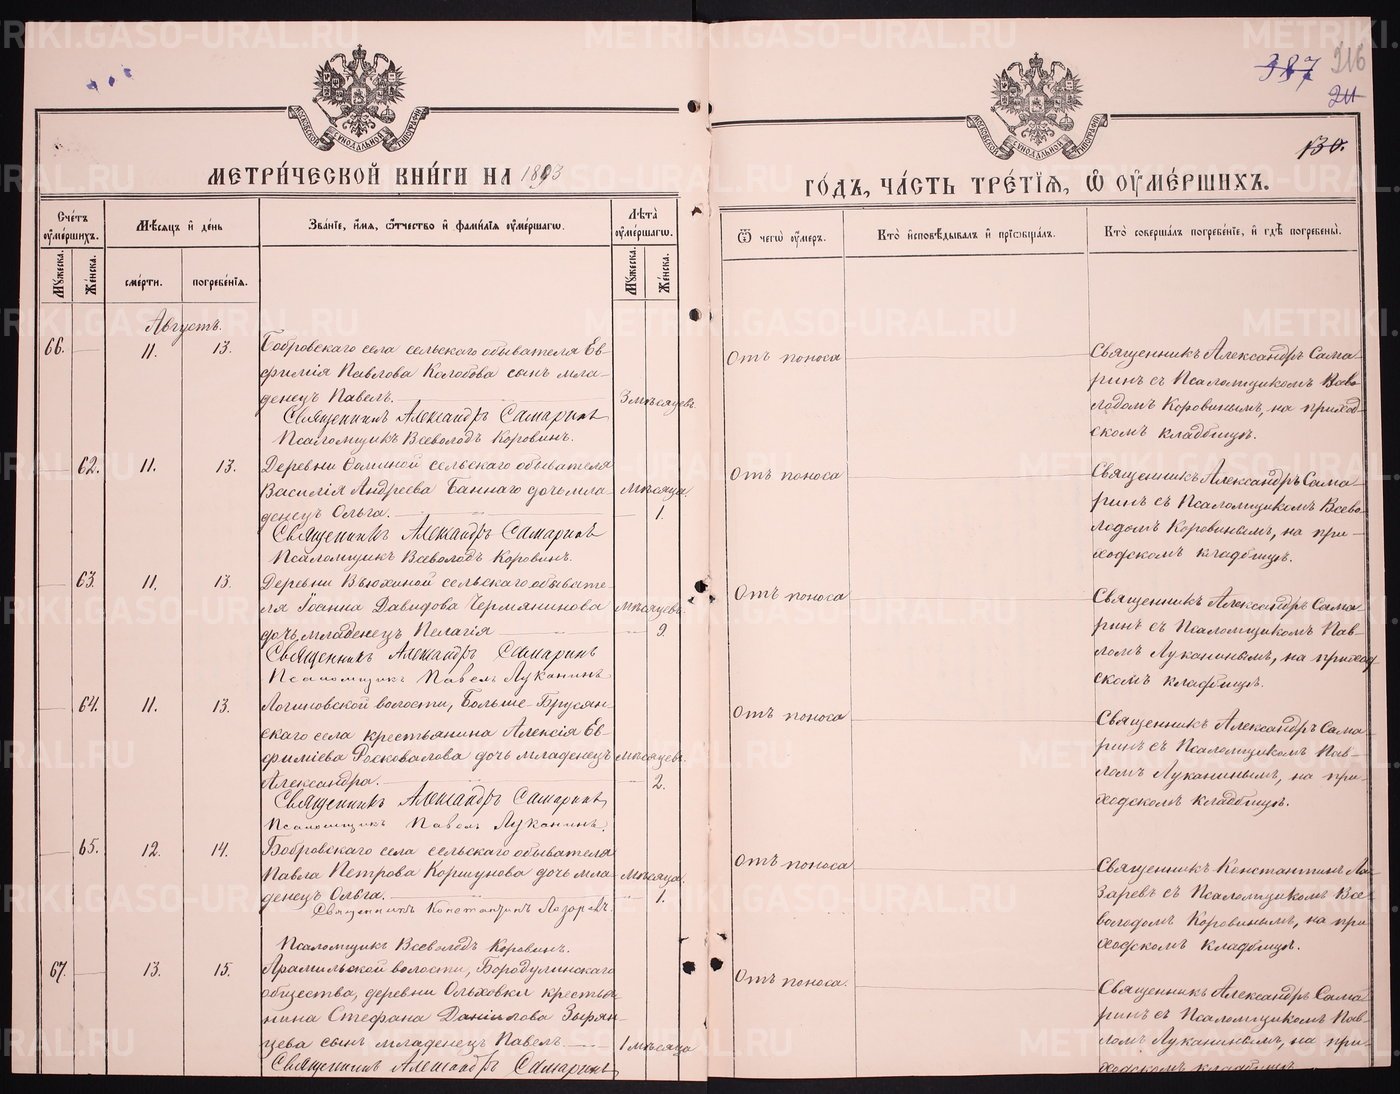 387 216
211
130.
МЕТРИ́ЧЕСКОЙ КНИ́ГИ НА 1893
ГО́ДЪ, ЧА́СТЬ ТРЕ́ТІЯ, Ѡ҆ ОУ҆МЕ́РШИХЪ.
Сче́тъ оу҆ме́ршихъ.
Мѣ́сяцъ и҆ де́нь
Зва́нїе, и҆́мя, ѻ҆́тчество и҆ фами́лїя оу҆ме́ршагѡ.
Лѣ́та оу҆ме́ршагѡ.
Ѿ чегѡ̀ оу҆́меръ.
Кто̀ и҆сповѣ́дывалъ и҆ прїѡбща́лъ.
Кто̀ соверша́лъ погребе́нїе, и҆ гдѣ̀ погребены̀.
Му́жеска.
Же́нска.
сме́рти.
погребе́нїя.
Му́жеска.
Же́нска.
Августъ.
66. 11. 13. Бобровскаго села сельскаго обывателя Ев-
фимія Павлова Колобова сынъ мла-
денецъ Павелъ. 3 мѣсяцевъ
Священникъ Александръ Самаринъ
Псаломщикъ Всеволодъ Коровинъ.
Отъ поноса
Священникъ Александръ Сама-
ринъ съ Псаломщикомъ Всево-
лодомъ Коровинымъ, на приход-
скомъ кладбищѣ.
62. 11. 13. Деревни сельскаго обывателя
Василія Андреева Баннаго дочь мла- Мѣсяца
денецъ Ольга. 1.
Священникъ Александръ Самаринъ
Псаломщикъ Всеволодъ Коровинъ.
Отъ поноса
Священникъ Александръ Сама-
ринъ съ Псаломщикомъ Всево-
лодомъ Коровинымъ, на при-
ходскомъ кладбищѣ.
63. 11. 13. Деревни Вьюхиной сельскаго обывате-
ля Іоанна Давидова Чермянинова Мѣсяцевъ
дочь младенецъ Пелагія 9.
Священникъ Александръ Самаринъ
Псаломщикъ Павелъ Луканинъ
Отъ поноса
Священникъ Александръ Сама-
ринъ съ Псаломщикомъ Пав-
ломъ Луканинымъ, на приход-
скомъ кладбищѣ.
64. 11. 13. Логиновской волости, Больше-Брусян-
скаго села крестьянина Алексія Ев-
фиміева Росковалова дочь младенецъ Мѣсяцевъ
Александра. 2.
Священникъ Александръ Самаринъ
Псаломщикъ Павелъ Луканинъ.
Отъ поноса
Священникъ Александръ Сама-
ринъ съ Псаломщикомъ Пав-
ломъ Луканинымъ, на при-
ходскомъ кладбищѣ.
65. 12. 14. Бобровскаго села сельскаго обывателя
Павла Петрова Коршунова дочь мла- Мѣсяца.
денецъ Ольга. 1.
Священникъ Константинъ Лазаревъ.
Псаломщикъ Всеволодъ Коровинъ.
Отъ поноса
Священникъ Константинъ Ла-
заревъ съ Псаломщикомъ Все-
володомъ Коровинымъ, на при-
ходскомъ кладбищѣ.
67. 13. 15. Арамильской волости, Бородулинскаго
общества, деревни Ольховки крестья-
нина Стефана Даніилова Зырян-
цева сынъ младенецъ Павелъ 1 мѣсяца
Священникъ Александръ Самаринъ
Отъ поноса.
Священникъ Александръ Сама-
ринъ съ Псаломщикомъ Пав-
ломъ Луканинымъ, на при-
ходскомъ кладбищѣ.